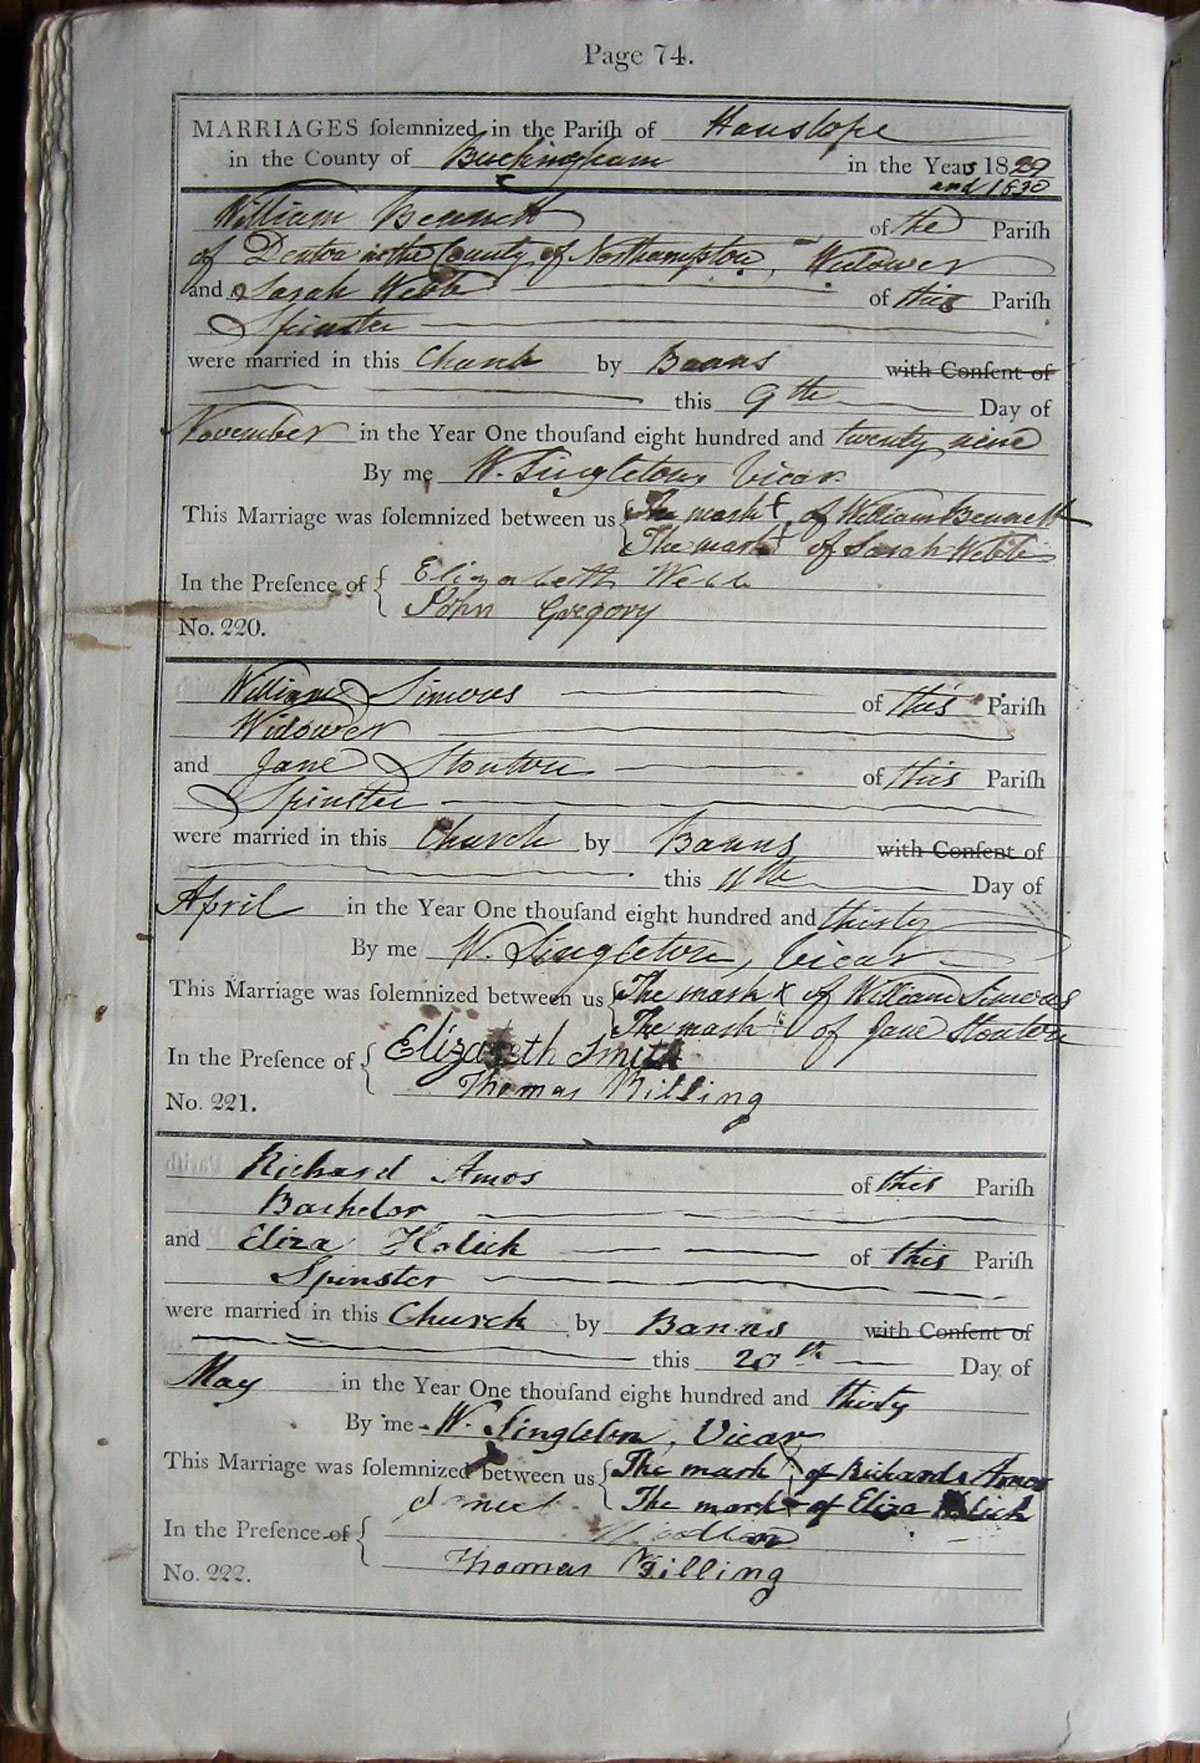 Page 74.
MARRIAGES ſolemnized in the Pariſh of Hanslope
in the County of Buckingham in the Years 1829
and 1830
William Bennett of the Pariſh
of Denton in the County of Northampton, Widower
and Sarah Webb of this Pariſh
Spinster
were married in this Church by Banns with Conſent of
this 9th Day of
November in the Year One thouſand eight hundred and twenty nine
By me W. Singleton, Vicar
This Marriage was ſolemnized between us The mark + of William Bennett
The mark + of Sarah Webb
In the Preſence of Elizabeth Webb
John Gregory
No. 220.
William Simons of this Pariſh
Widower
and Jane Stonton of this Pariſh
Spinster
were married in this Church by Banns with Conſent of
this 11th Day of
April in the Year One thouſand eight hundred and thirty
By me W. Singleton, Vicar
This Marriage was ſolemnized between us The mark x of William Simons
The mark of Jane Stonton
In the Preſence of Elizabeth Smith
Thomas Billing
No. 221.
Richard Amos of this Pariſh
Bachelor
and Eliza Holick of this Pariſh
Spinster
were married in this Church by Banns with Conſent of
this 20th Day of
May in the Year One thouſand eight hundred and thirty
By me W. Singleton, Vicar
This Marriage was ſolemnized between us The mark x of Richard Amos
The mark x of Eliza Holick
In the Preſence of
Thomas Billing
No. 222.